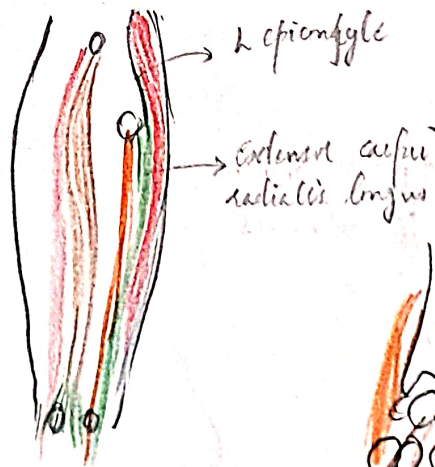 L epicondyle
Extensor carpi
radialis longus